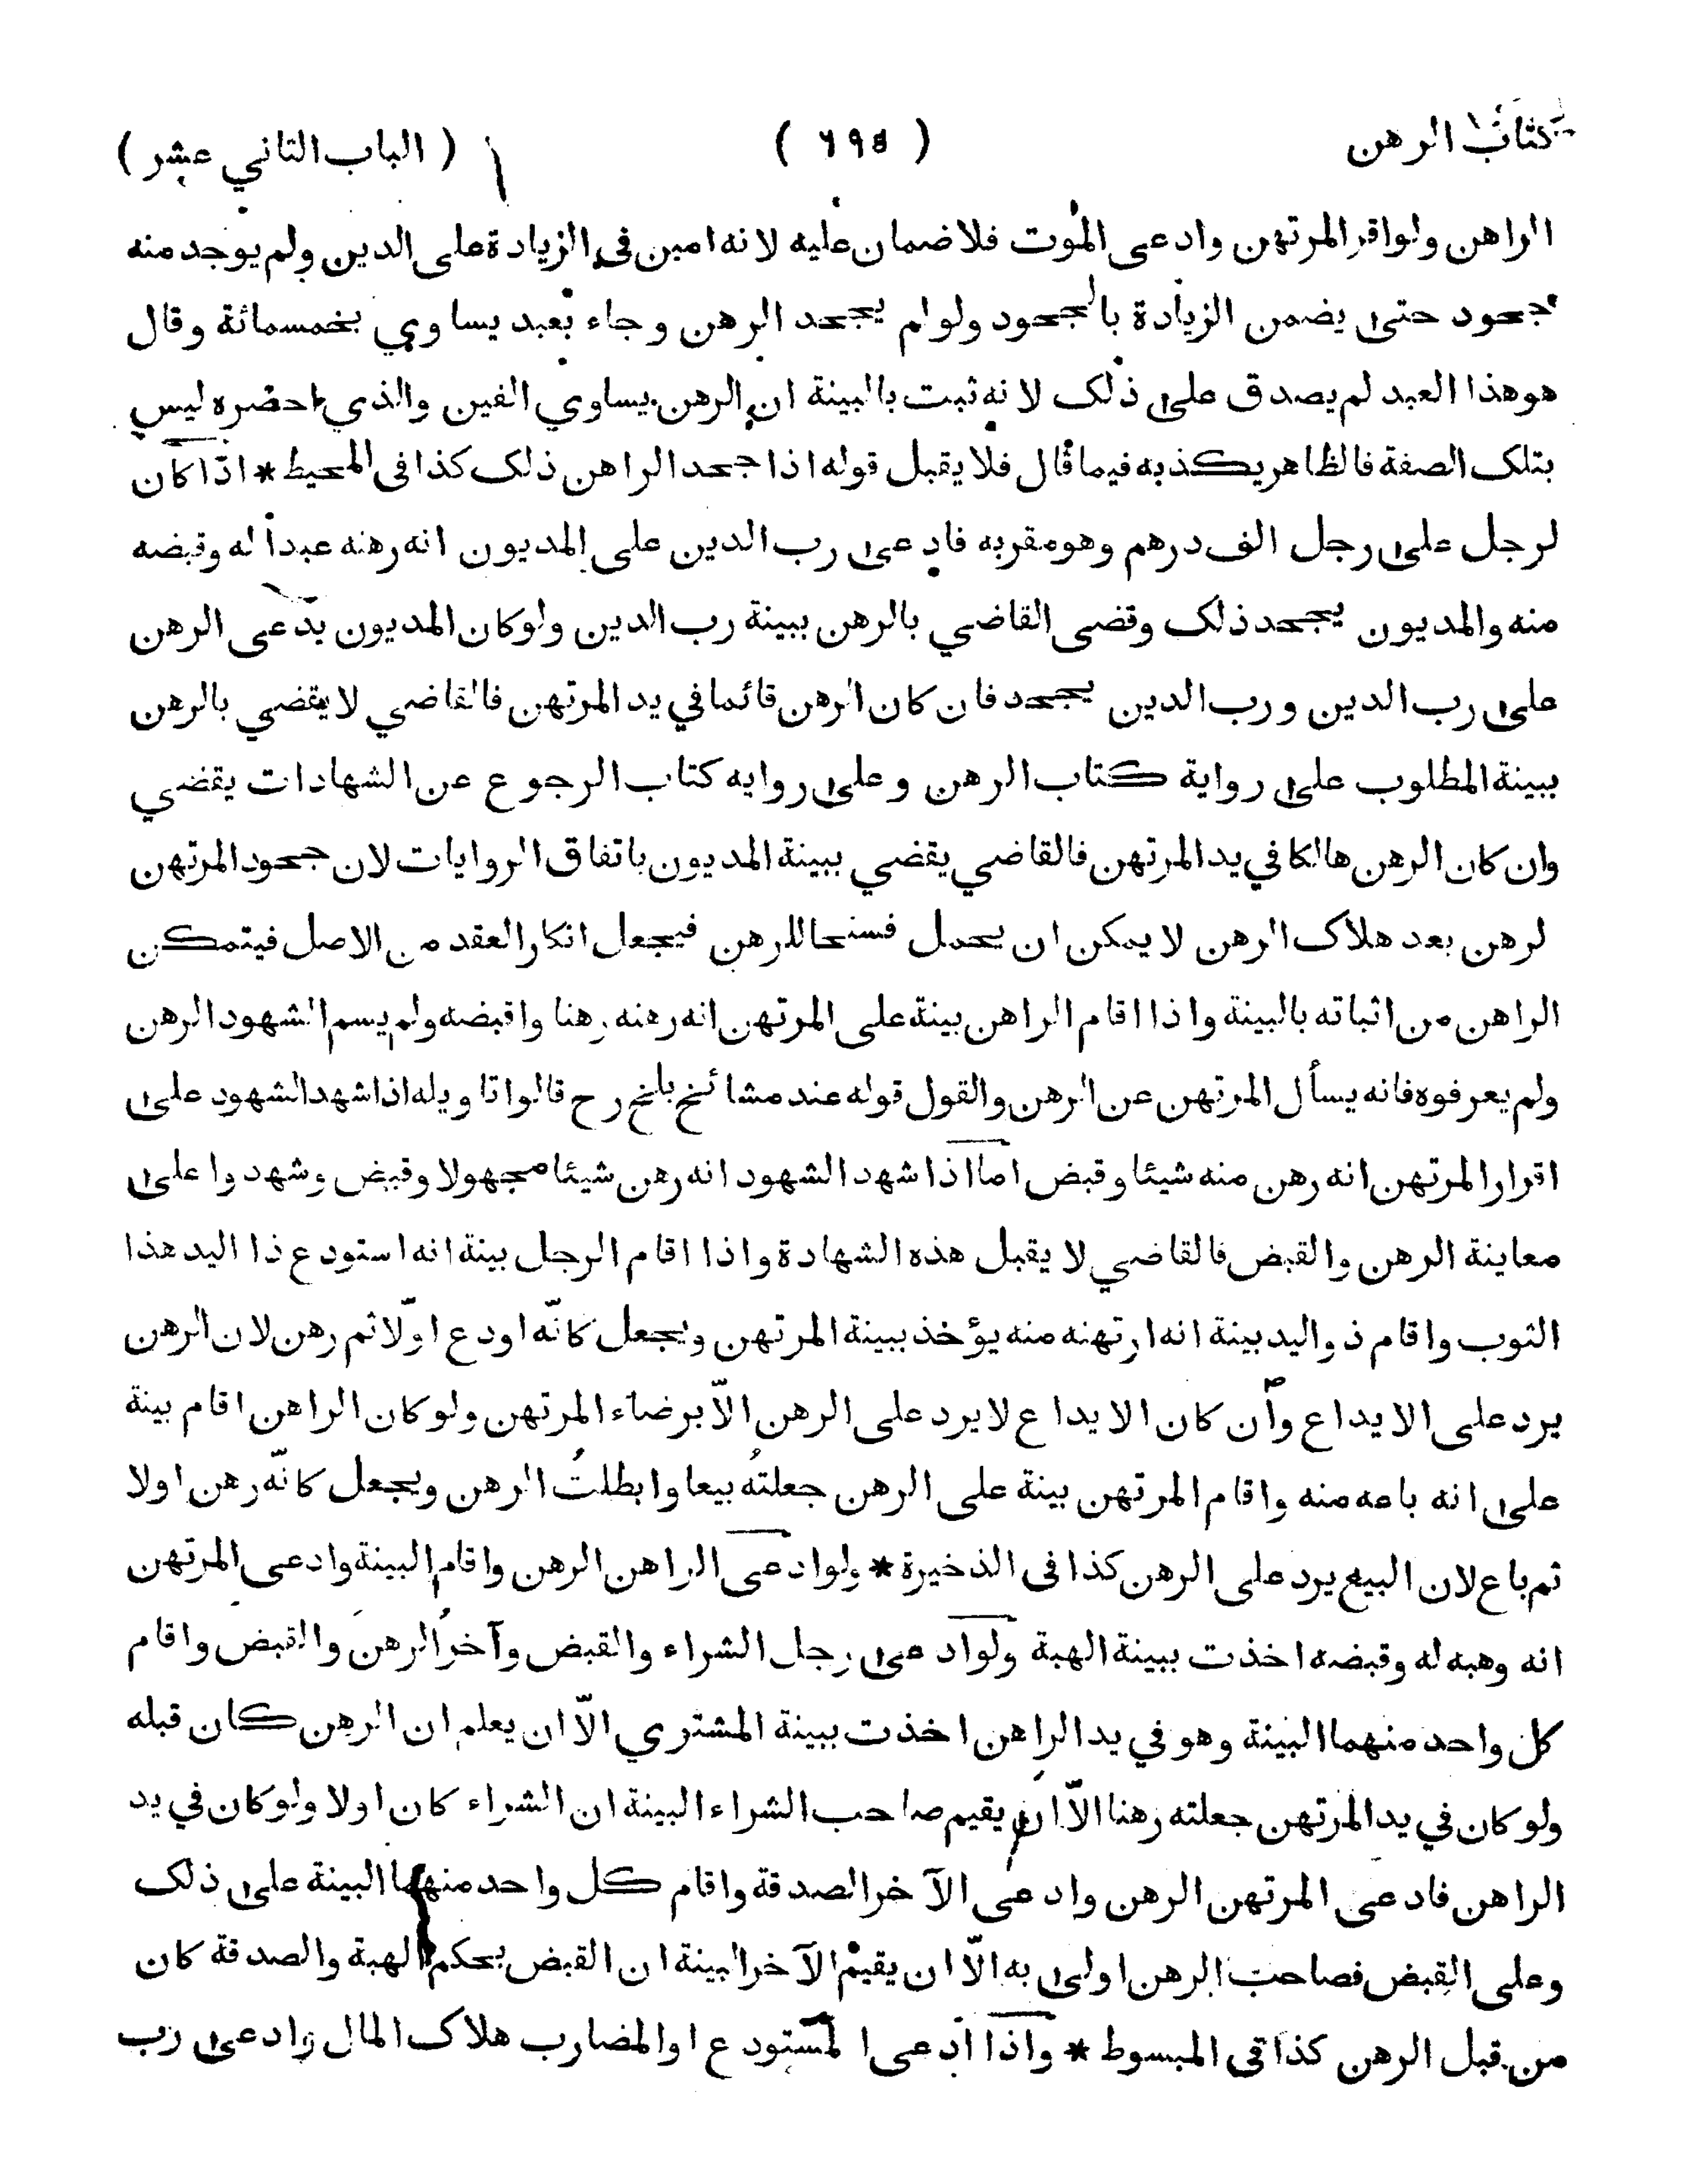 كتاب الرهن ( ٦٩٥ ) ( الباب الثاني عشر )
الراهن ولو اقر المرتهن وادعى الموت فلا ضمان عليه لانه امين فى الزيادة على الدين ولم يوجد منه
جحود حتى يضمن الزيادة بالجحود ولو لم يجحد الرهن وجاء بعبد يساوي بخمسمائة وقال
هو هذا العبد لم يصدق على ذلك لانه ثبت بالبينة ان الرهن يساوي الفين والذي احضره ليس
بتلك الصفة فالظاهر يكذبه فيما قال فلا يقبل قوله اذا جحد الراهن ذلك كذا فى المحيط * اذا كان
لرجل على رجل الف درهم وهو مقر به فادعى رب الدين على المديون انه رهنه عبداً له وقبضه
منه والمديون يجحد ذلك وقضى القاضي بالرهن ببينة رب الدين ولو كان المديون يدعى الرهن
على رب الدين ورب الدين يجحد فان كان الرهن قائما في يد المرتهن فالقاضي لا يقضي بالرهن
ببينة المطلوب على رواية كتاب الرهن وعلى روايه كتاب الرجوع عن الشهادات يقضي
وان كان الرهن هالكا في يد المرتهن فالقاضي يقضي ببينة المديون باتفاق الروايات لان جحود المرتهن
لرهن بعد هلاك الرهن لا يمكن ان يحمل فسخا للرهن فيجعل انكار العقد من الاصل فيتمكن
الراهن من اثباته بالبينة واذا اقام الراهن بينة على المرتهن انه رهنه رهنا واقبضه ولم يسم الشهود الرهن
ولم يعرفوه فانه يسأل المرتهن عن الرهن والقول قوله عند مشائخ بلخ رح قالوا تاويله اذا شهد الشهود على
اقرار المرتهن انه رهن منه شيئا وقبض اما اذا شهد الشهود انه رهن شيئا مجهولا وقبض وشهدوا على
معاينة الرهن والقبض فالقاضي لا يقبل هذه الشهادة واذا اقام الرجل بينة انه استودع ذا اليد هذا
الثوب واقام ذو اليد بينة انه ارتهنه منه يؤخذ ببينة المرتهن ويجعل كانّه اودع اوّلا ثم رهن لان الرهن
يرد على الايداع وأن كان الايداع لا يرد على الرهن الاّ برضاء المرتهن ولو كان الراهن اقام بينة
على انه باعه منه واقام المرتهن بينة على الرهن جعلتُه بيعا وابطلتُ الرهن ويجعل كانّه رهن اولا
ثم باع لان البيع يرد على الرهن كذا فى الذخيرة * ولو ادعى الراهن الرهن واقام البينة وادعى المرتهن
انه وهبه له وقبضه اخذت ببينة الهبة ولو ادعى رجل الشراء والقبض وآخر الرهن والقبض واقام
كل واحد منهما البينة وهو في يد الراهن اخذت ببينة المشتري الاّ ان يعلم ان الرهن كان قبله
ولو كان في يد المرتهن جعلته رهنا الاّ ان يقيم صاحب الشراء البينة ان الشراء كان اولا ولو كان في يد
الراهن فادعى المرتهن الرهن وادعى الآخر الصدقة واقام كل واحد منهما البينة على ذلك
وعلى القبض فصاحب الرهن اولى به الاّ ان يقيم الآخر البينة ان القبض بحكم الهبة والصدقة كان
من قبل الرهن كذا فى المبسوط * واذا ادعى المستودع او المضارب هلاك المال وادعى رب